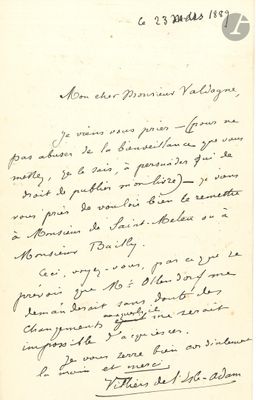 le 23 mars 1889
Mon cher Monsieur Valdagne,
Je viens vous prier — (pour ne
pas abuser de la bienveillance que vous
mettez, je le sais, à persuader qui de
droit de publier mon livre) — je vous
vous prier de vouloir bien le remettre
à Monsieur de Saint-Meleu ou à
Monsieur Bailly.
Ceci, voyez-vous, parce que je
prévois que Mr Ollendorf me
demanderait sans doute des
changements auxquels il me serait
impossible d'acquiescer.
Je vous serre bien cordialement
la main et merci
Villiers de l'Isle-Adam